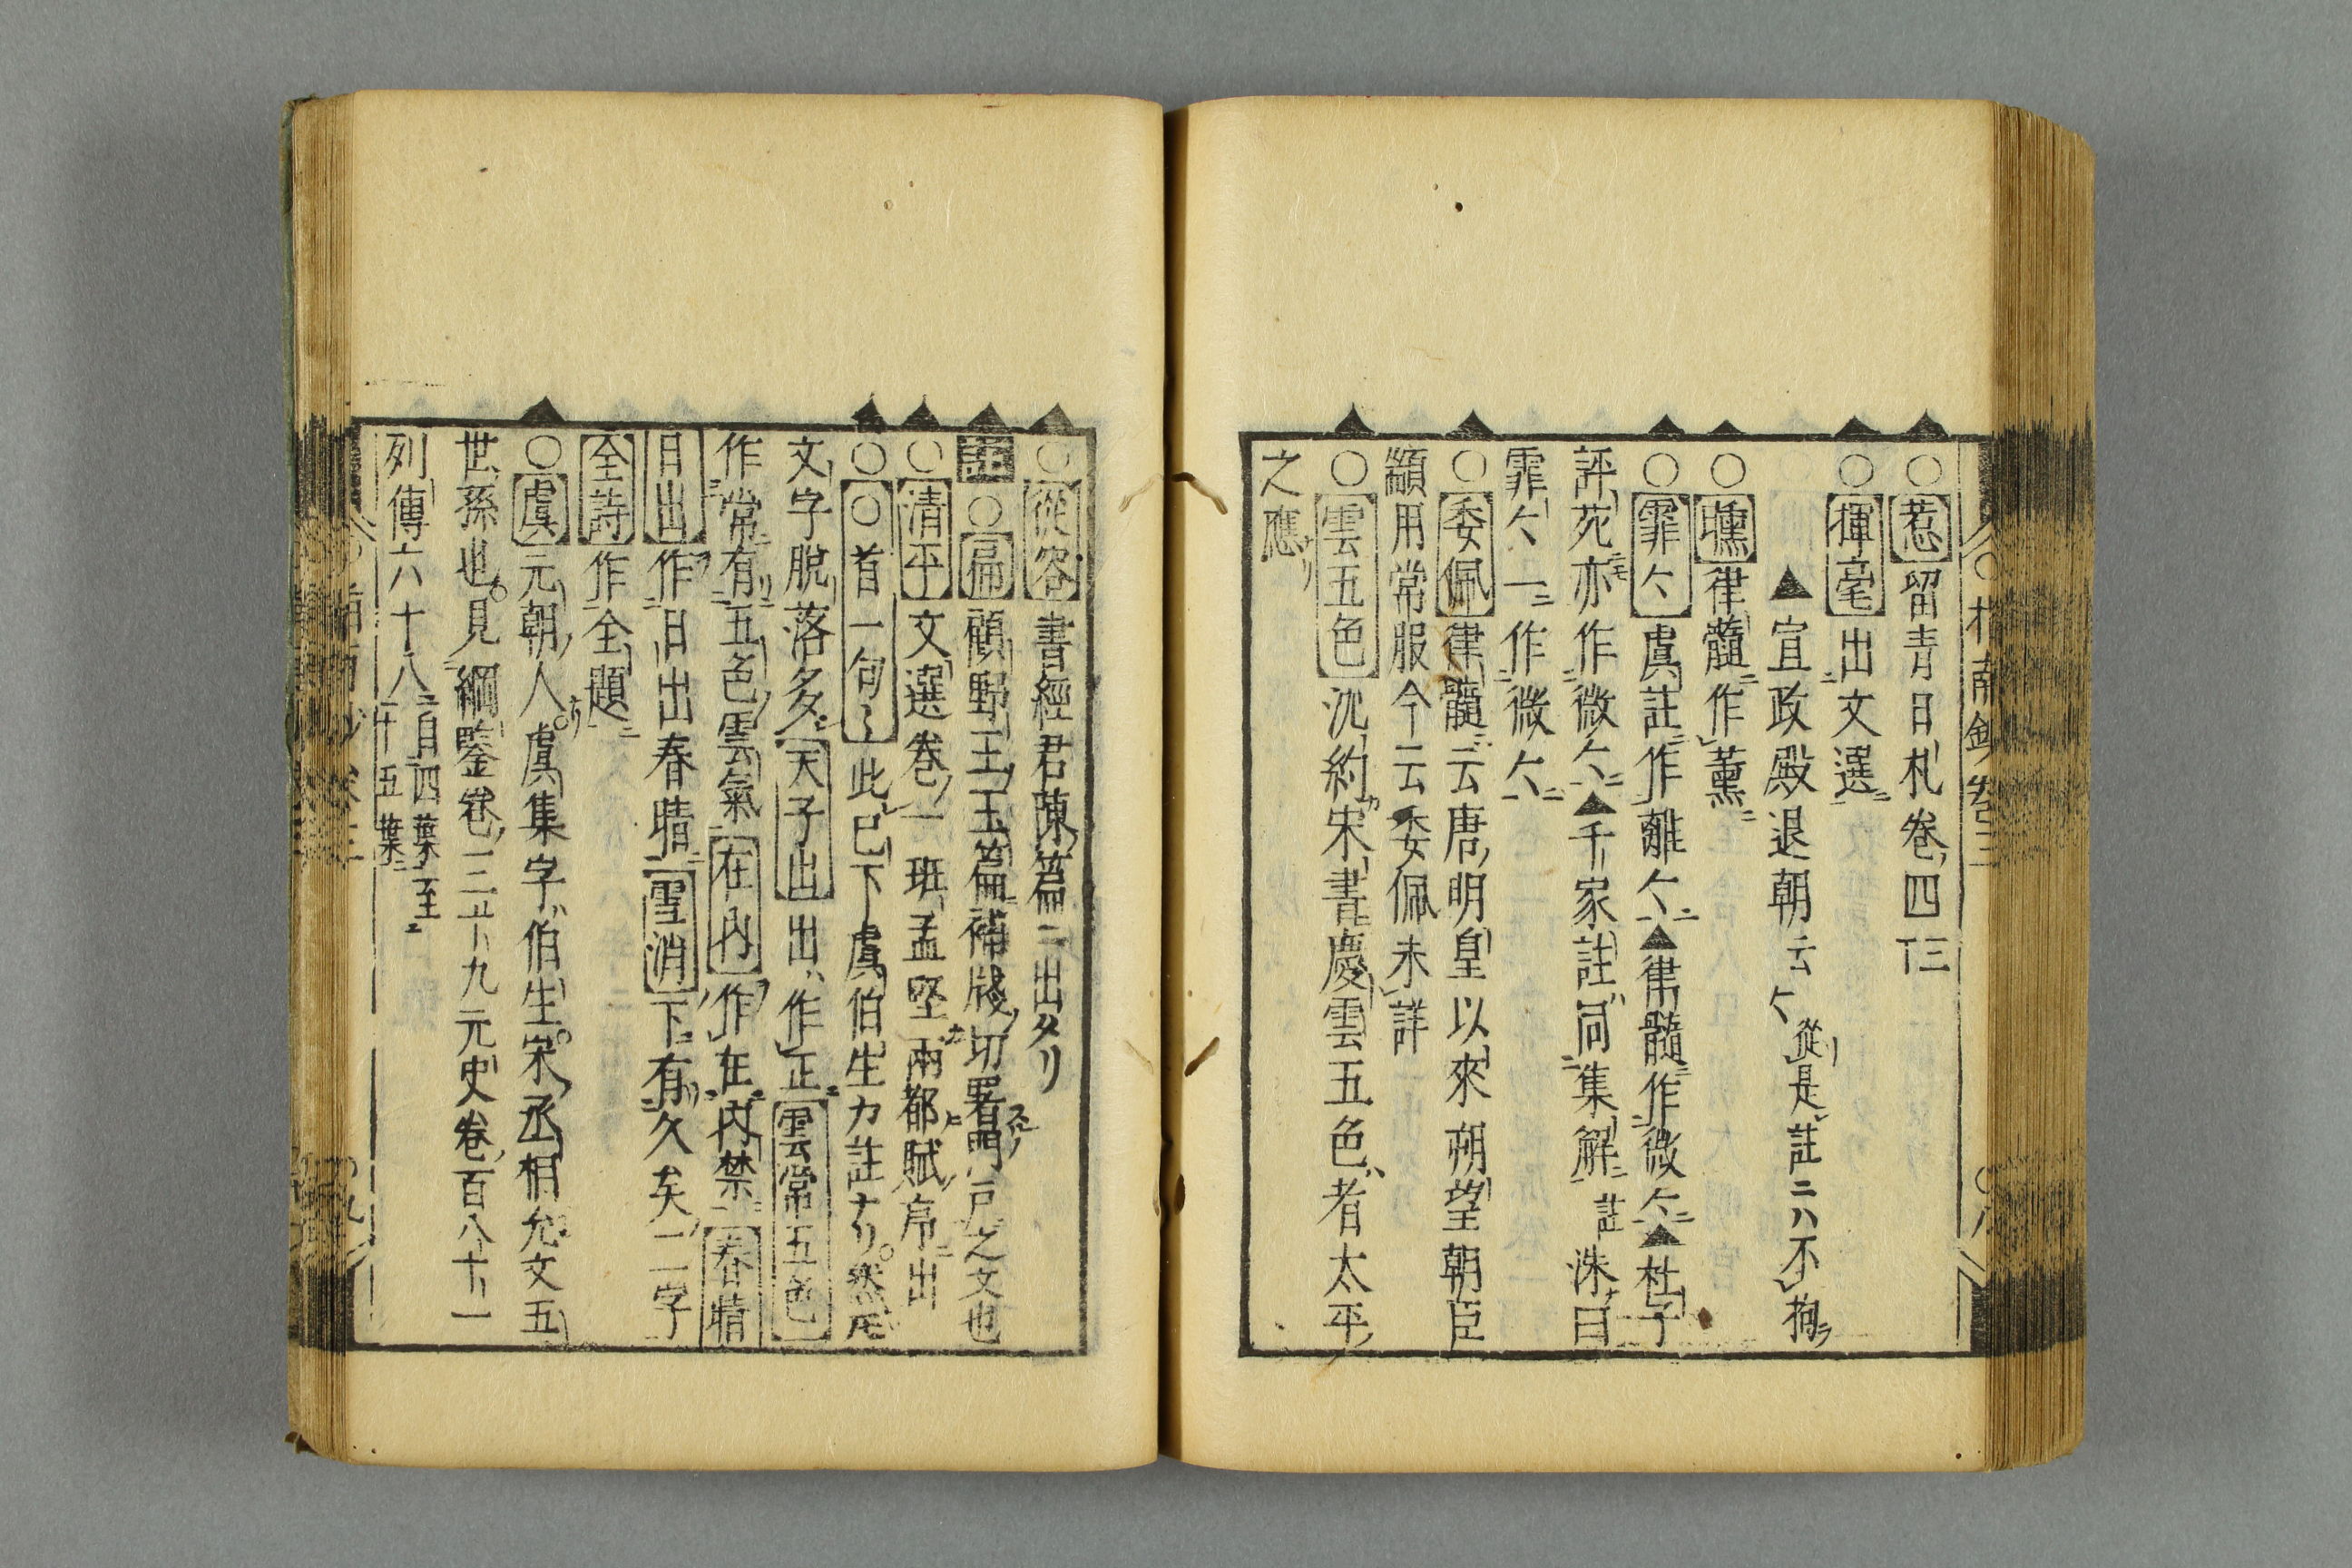 ○惹留青日札卷四丁三
○揮毫出文選ニ
▲宣政殿退朝云〻從是註ニハ不拘
○曛律髓ニ作薰ニ
○霏〻虞註ニ作離〻ニ▲律髓ニ作微〻ニ▲杜子
評苑ニモ亦作微〻ニ▲千家註同集解ニ註洙曰
霏〻一ニ作微〻ニ
○委佩律髓ニ云唐明皇以來朔望朝臣
顓用常服今云委佩未詳
○雲五色沈約カ宋書慶雲五色ハ者太平
之應ナリ
○從容書經君陳篇ニ出タリ
註○扁顧野王玉篇補牋切署門戸之文也
○清平文選卷一班孟堅兩都賦序ニ出
○○首一句〻此已下虞伯生カ註ナリ○然尾
文字脫落多天子出出ハ作正ニ雲常五色
作常有五色雲氣ニ在內作在內禁ニ春晴
日出作日出春晴ニ雪消下ニ有久矣二字
全詩作全題ニ
○虞元朝人ナリ○虞集字ハ伯生○宋丞相允文五
世孫也○見綱鑒卷三十九元史卷百八十一
列傳六十八ニ自四葉至
十五葉ニ